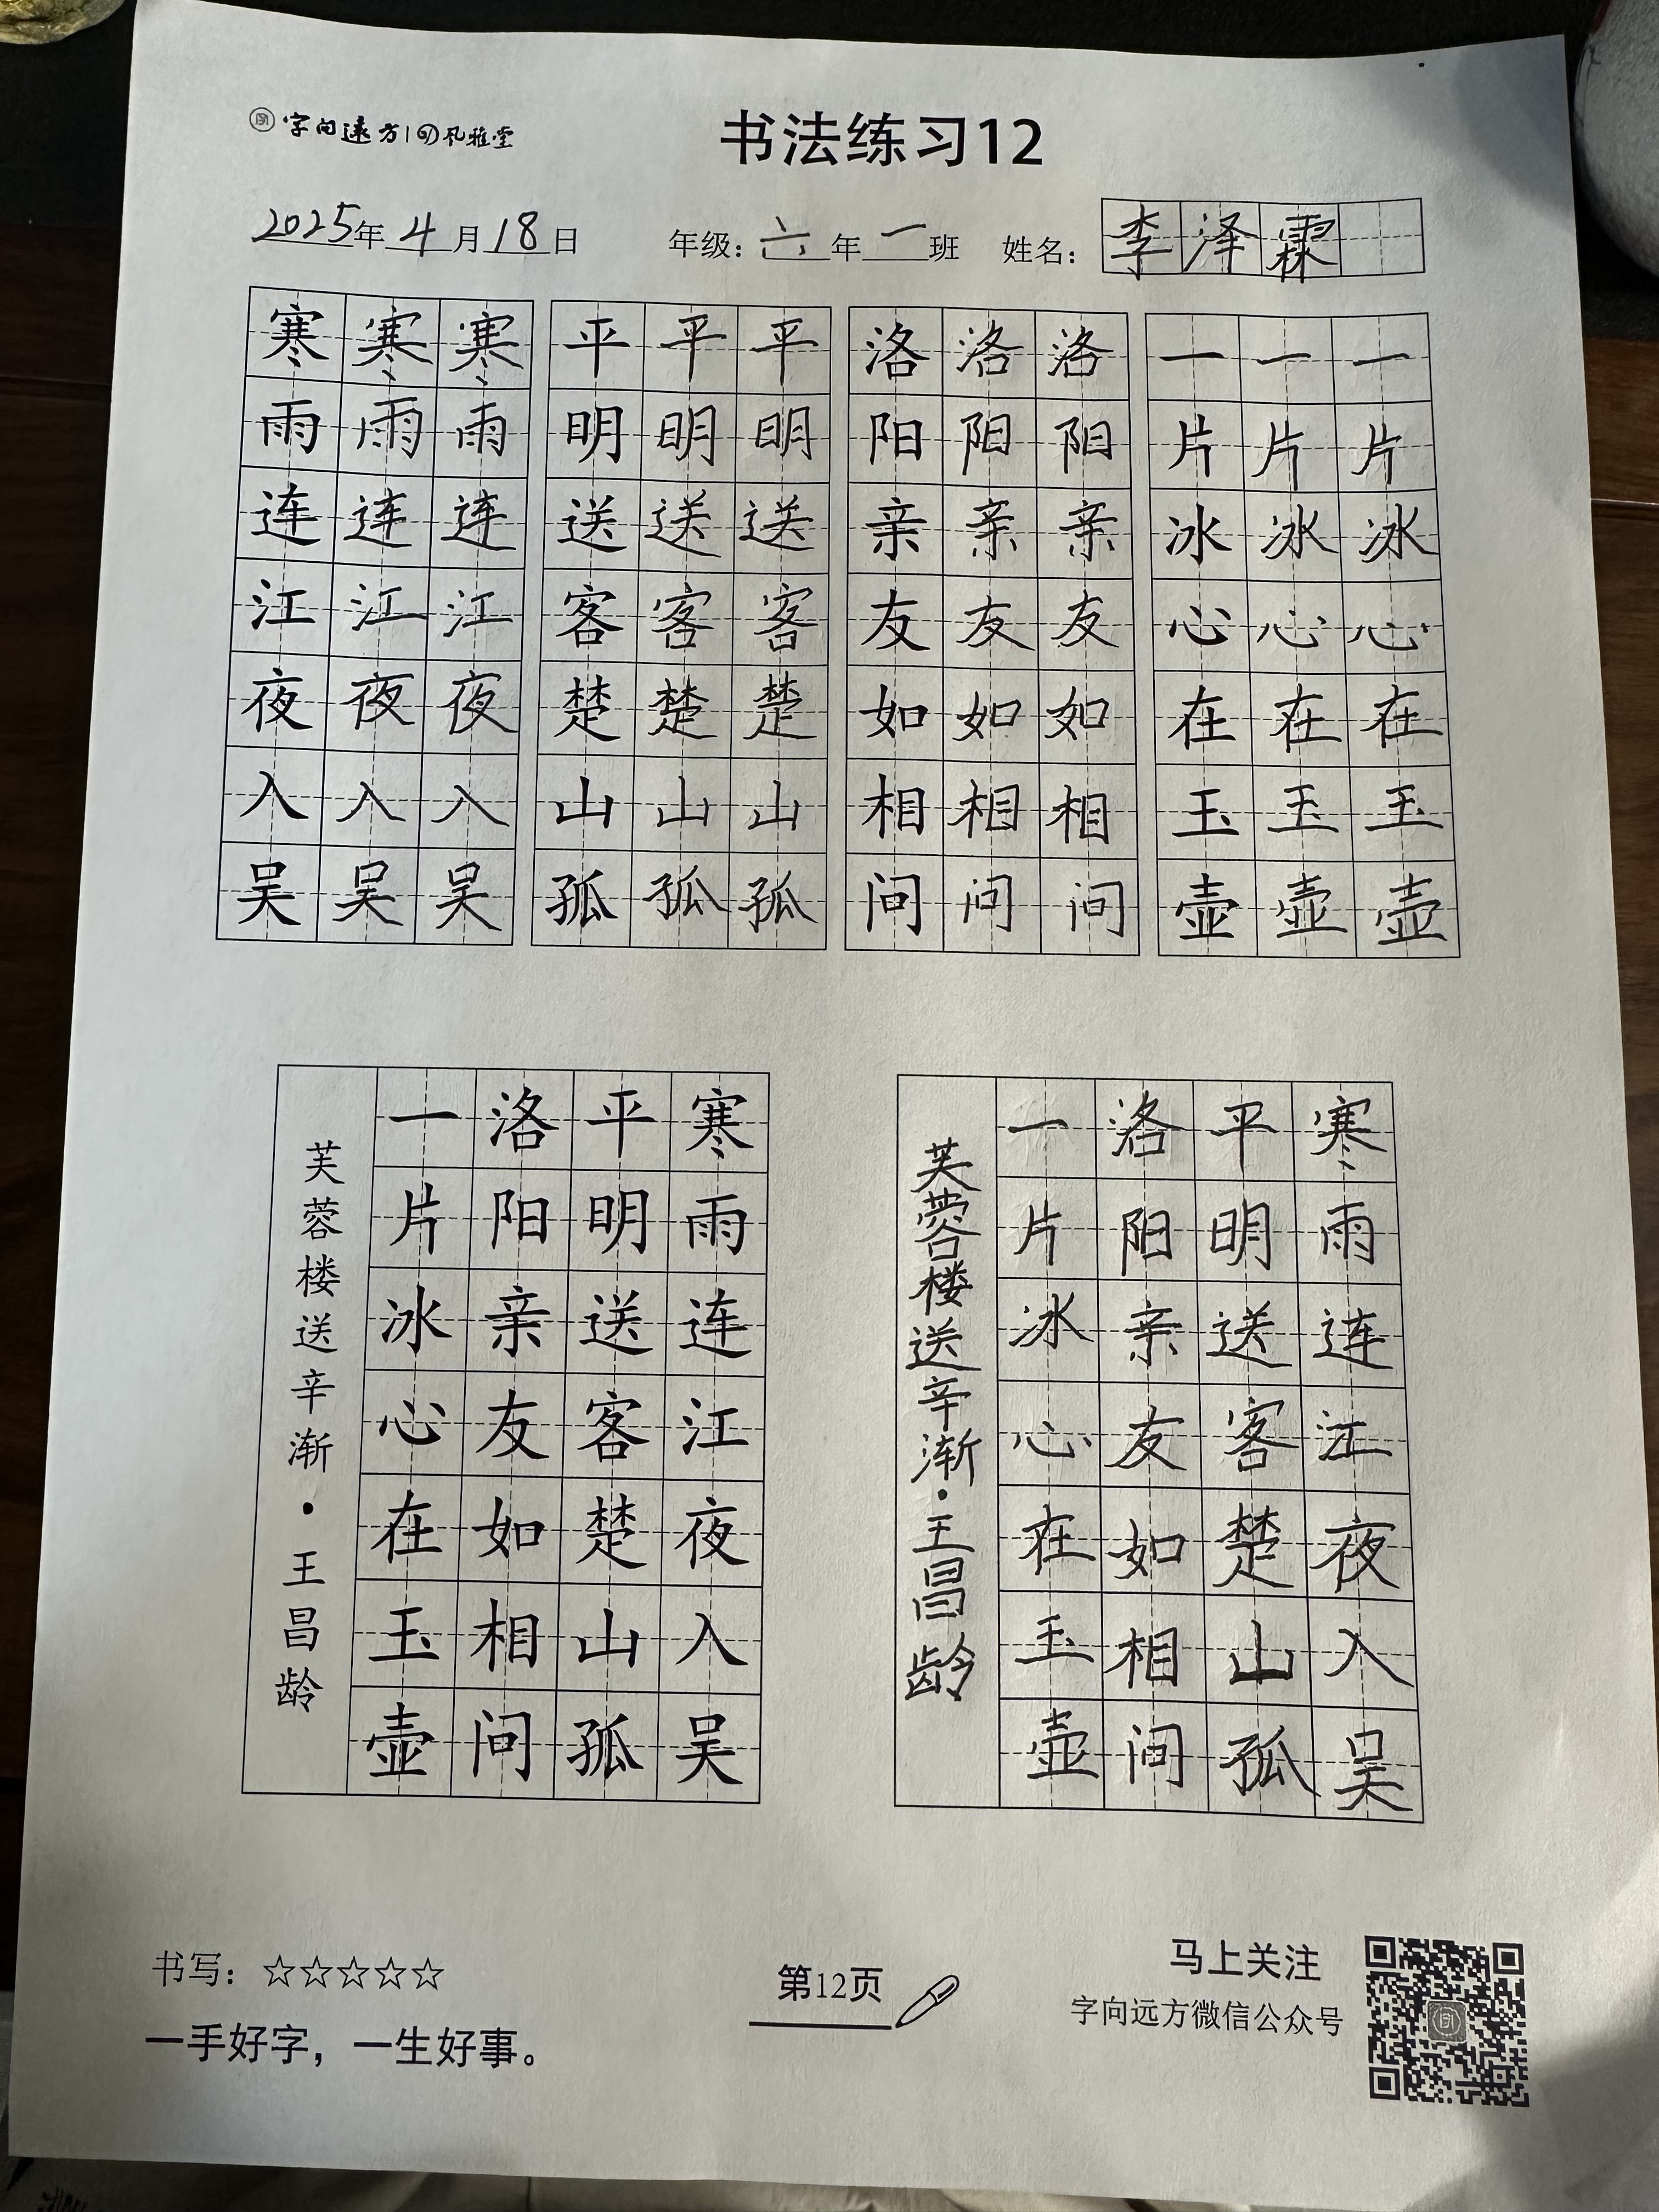 字向遠方 礼雅堂
书法练习12
2025年4月18日 年级：六年一班 姓名：李泽霖
寒寒寒 平平平 洛洛洛 一一一
雨雨雨 明明明 阳阳阳 片片片
连连连 送送送 亲亲亲 冰冰冰
江江江 客客客 友友友 心心心
夜夜夜 楚楚楚 如如如 在在在
入入入 山山山 相相相 玉玉玉
吴吴吴 孤孤孤 问问问 壶壶壶
寒雨连江夜入吴
平明送客楚山孤
洛阳亲友如相问
一片冰心在玉壶
芙蓉楼送辛渐·王昌龄
寒雨连江夜入吴
平明送客楚山孤
洛阳亲友如相问
一片冰心在玉壶
芙蓉楼送辛渐·王昌龄
书写：☆☆☆☆☆
一手好字，一生好事。
第12页
马上关注
字向远方微信公众号